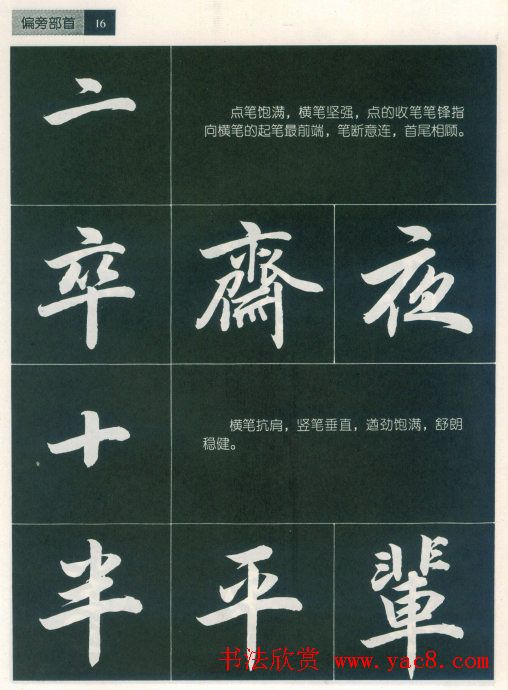 偏旁部首 16
亠
点笔饱满，横笔坚强，点的收笔笔锋指
向横笔的起笔最前端，笔断意连，首尾相顾。
卒 齋 夜
十
横笔抗肩，竖笔垂直，遒劲饱满，舒朗
稳健。
半 平 輩
书法欣赏 www.yac8.com